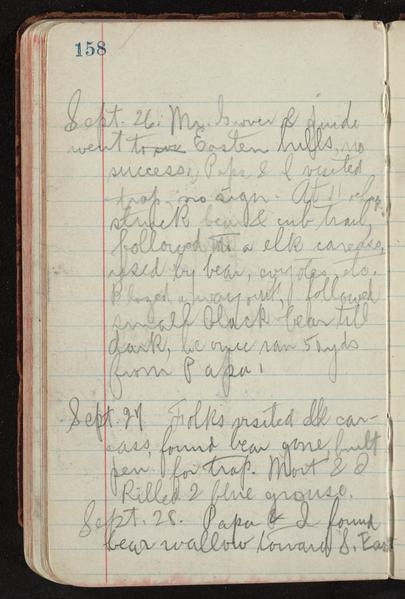 158
Sept. 26. Mr. Grover & guide
went to Eastern hills, no
success, Papa & I visited
trap, no sign. At 11
struck bear & cub trail,
followed to a elk carcase,
used by bear, coyotes, etc.
Blazed a way out, followed
small black bear till
dark, he once ran 50 yds
from Papa.
Sept. 27 Folks visited elk car-
cass, found bear gone, built
pen for trap. Mort & I
Killed 2 blue grouse.
Sept. 28. Papa & I found
bear wallow toward S. East